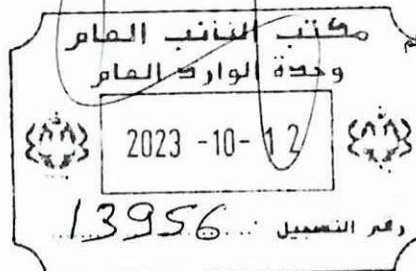 مكتب النائب العام
وحدة الوارد العام
2023 -10- 12
رقم التسجيل ... 13956